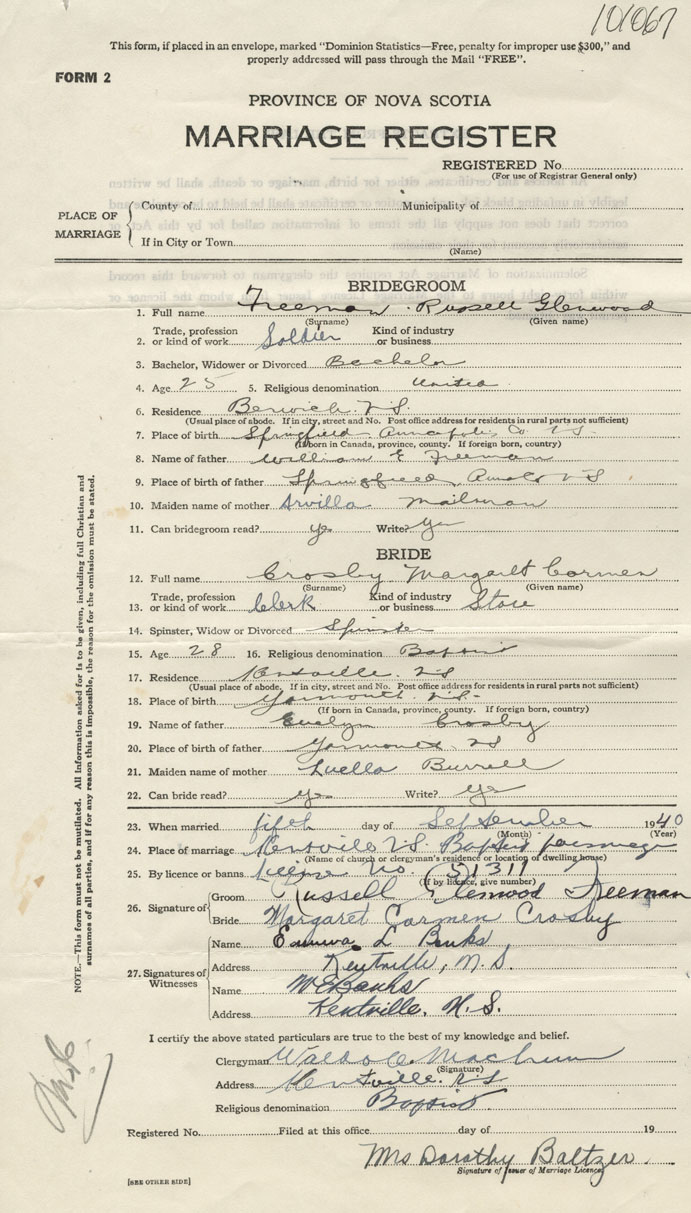 101067
This form, if placed in an envelope, marked “Dominion Statistics—Free, penalty for improper use $300,” and
properly addressed will pass through the Mail “FREE”.
FORM 2
PROVINCE OF NOVA SCOTIA
MARRIAGE REGISTER
REGISTERED No.
(For use of Registrar General only)
PLACE OF MARRIAGE
County of Municipality of
If in City or Town
(Name)
BRIDEGROOM
1. Full name Freeman Russell Glenwood
(Surname) (Given name)
2. Trade, profession or kind of work Soldier Kind of industry or business
3. Bachelor, Widower or Divorced Bachelor
4. Age 25 5. Religious denomination United
6. Residence Berwick N.S.
(Usual place of abode. If in city, street and No. Post office address for residents in rural parts not sufficient)
7. Place of birth Springfield Annapolis Co. N.S.
(If born in Canada, province, county. If foreign born, country)
8. Name of father William E Freeman
9. Place of birth of father Springfield, N S
10. Maiden name of mother Arvilla Mailman
11. Can bridegroom read? Yes Write? Yes
BRIDE
12. Full name Crosby Margaret Carmen
(Surname) (Given name)
13. Trade, profession or kind of work Clerk Kind of industry or business Store
14. Spinster, Widow or Divorced Spinster
15. Age 28 16. Religious denomination Baptist
17. Residence Kentville N.S
(Usual place of abode. If in city, street and No. Post office address for residents in rural parts not sufficient)
18. Place of birth Yarmouth N.S.
(If born in Canada, province, county. If foreign born, country)
19. Name of father Evelyn Crosby
20. Place of birth of father Yarmouth NS
21. Maiden name of mother Luella Burrell
22. Can bride read? Yes Write? Yes
23. When married fifth day of September 1940
(Month) (Year)
24. Place of marriage Kentville N.S. Baptist parsonage
(Name of church or clergyman's residence or location of dwelling house)
25. By licence or banns license No. (51311)
(If by licence, give number)
26. Signature of Groom Russell Glenwood Freeman
Bride Margaret Carmen Crosby
27. Signatures of Witnesses
Name L Banks
Address Kentville, N.S.
Name Banks
Address Kentville, N.S.
I certify the above stated particulars are true to the best of my knowledge and belief.
Clergyman
(Signature)
Address Kentville. N.S
Religious denomination Baptist
Registered No. Filed at this office day of 19
Mrs Dorothy Baltzer.
Signature of Issuer of Marriage Licence
[SEE OTHER SIDE]
NOTE.—This form must not be mutilated. All information asked for is to be given, including full Christian and
surnames of all parties, and if for any reason this is impossible, the reason for the omission must be stated.